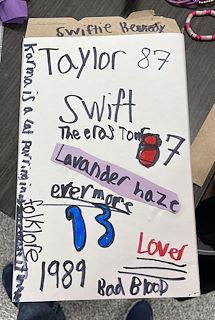 Swiftie Kennedy
Taylor 87
Swift
The eras Tour 87
Lavander haze
evermore
13
Lover
1989
Bad Blood
folklore
Karma is a cat purring in